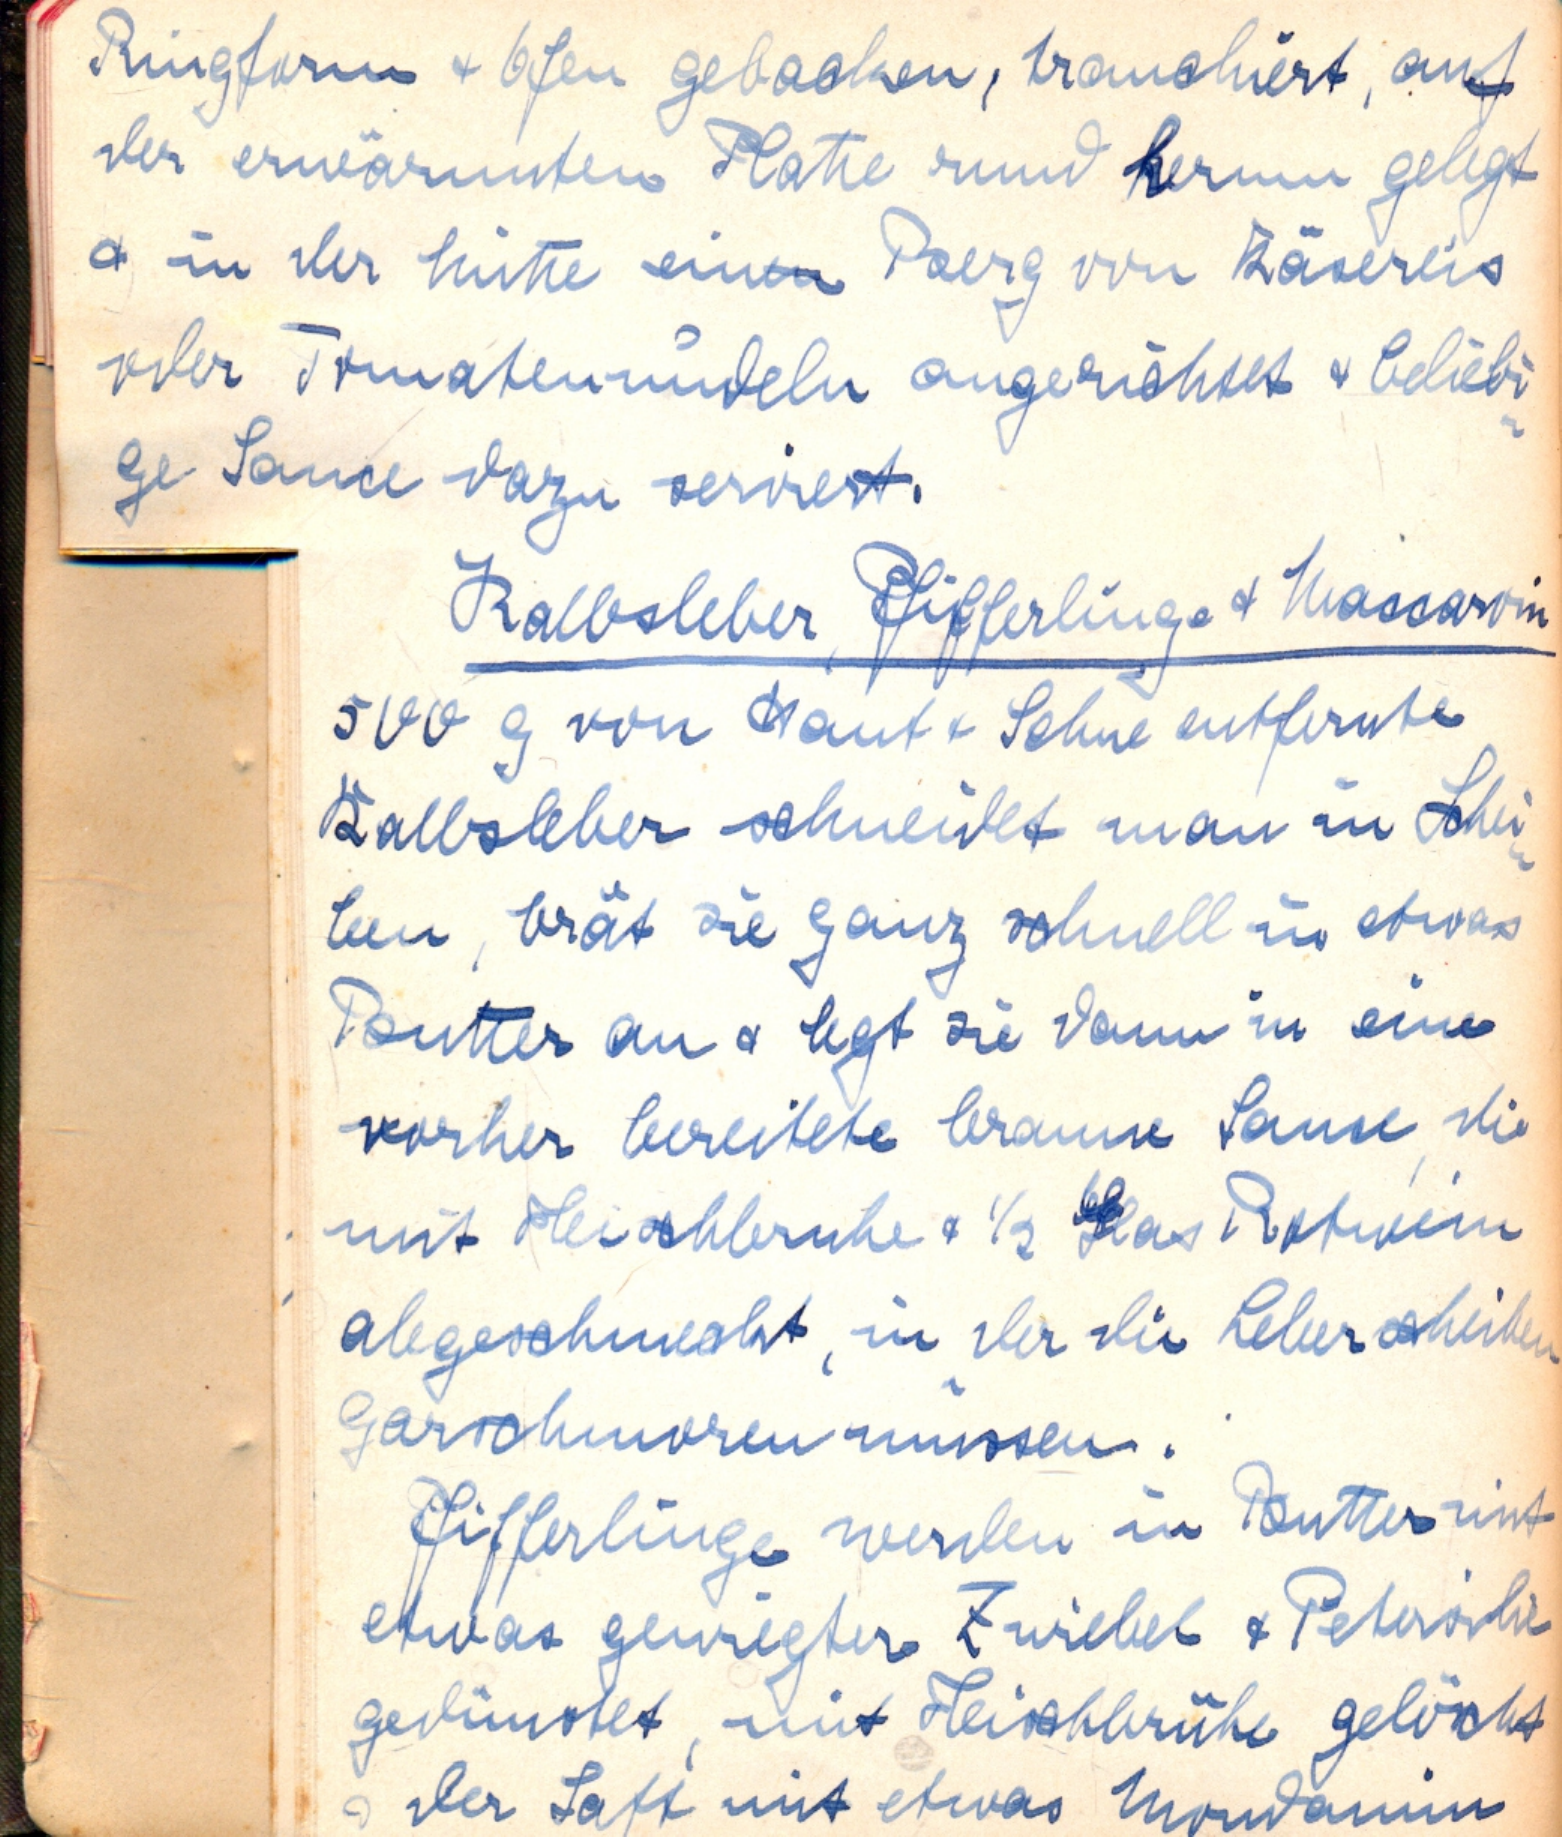 Ringform & Ofen gebacken, tranchiert, auf
der erwärmten Platte rund herum gelegt
& in der Mitte einen Berg von Käsereis
oder Tomatennudeln angerichtet & beliebi-
ge Sauce dazu serviert.
Kalbsleber, Pfifferlinge & Maccaroni
500 g von Haut & Sehne entfernte
Kalbsleber schneidet man in Schei-
ben, brät sie ganz schnell in etwas
Butter an & legt sie dann in eine
vorher bereitete braune Sauce, die
mit Fleischbruhe & 1/2 Glas Rotwein
abgeschmeckt, in der die Leberscheiben
garschmoren müssen.
Pfifferlinge werden in Butter mit
etwas gewiegter Zwiebel & Petersilie
gedünstet, mit Fleischbrühe gelöscht
& der Saft mit etwas Mondamin